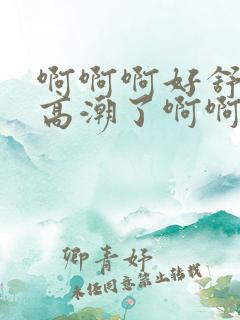 啊啊啊好舒
高潮了啊啊
卿青妤
未经同意禁止转载